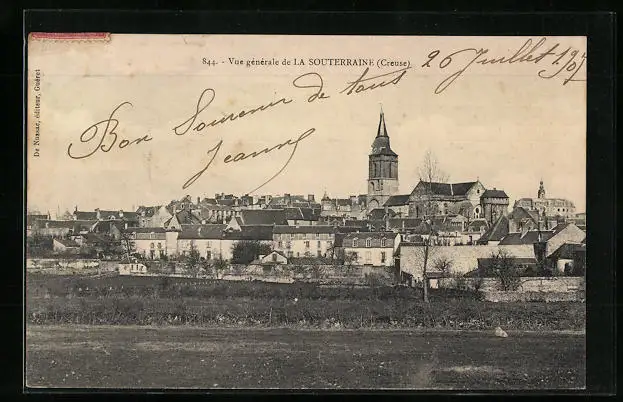 844. - Vue générale de LA SOUTERRAINE (Creuse)
26 Juillet 1905
Bon Souvenir de tous
Jeanne
De Nussac, éditeur, Guéret